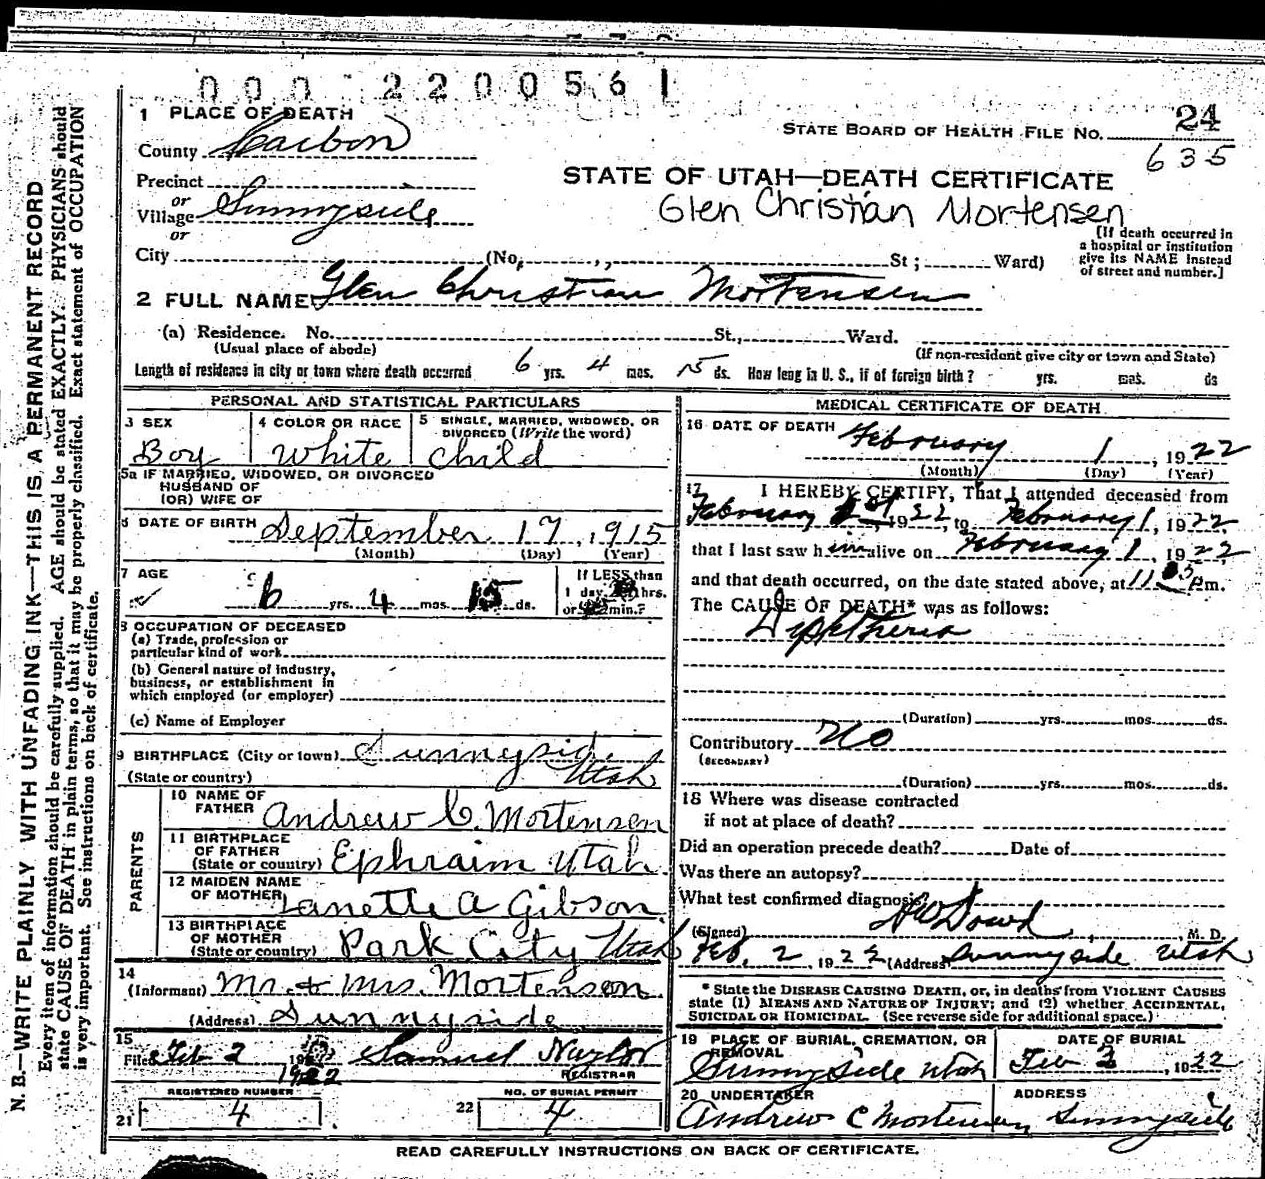 000 2200561
1 PLACE OF DEATH
24
STATE BOARD OF HEALTH FILE NO.
County Carbon
635
Precinct
STATE OF UTAH—DEATH CERTIFICATE
or
Village Sunnyside
Glen Christian Mortensen
or
[If death occurred in
a hospital or institution
give its NAME instead
of street and number.]
City (No. , , St ; Ward)
2 FULL NAME Glen Christian Mortensen
(a) Residence. No. St., Ward.
(Usual place of abode) (If non-resident give city or town and State)
Length of residence in city or town where death occurred 6 yrs. 4 mos. 15 ds. How long in U. S., if of foreign birth? yrs. mos. ds
PERSONAL AND STATISTICAL PARTICULARS
3 SEX
Boy
4 COLOR OR RACE
White
5 SINGLE, MARRIED, WIDOWED, OR
DIVORCED (Write the word)
Child
5a IF MARRIED, WIDOWED, OR DIVORCED
HUSBAND OF
(OR) WIFE OF
6 DATE OF BIRTH September 17, 1915
(Month) (Day) (Year)
7 AGE
6 yrs. 4 mos. 15 ds.
If LESS than
1 day hrs.
or min.?
8 OCCUPATION OF DECEASED
(a) Trade, profession or
particular kind of work
(b) General nature of industry,
business, or establishment in
which employed (or employer)
(c) Name of Employer
9 BIRTHPLACE (City or town) Sunnyside
(State or country) Utah
PARENTS
10 NAME OF
FATHER Andrew C. Mortensen
11 BIRTHPLACE
OF FATHER
(State or country) Ephraim Utah
12 MAIDEN NAME
OF MOTHER Lanette A Gibson
13 BIRTHPLACE
OF MOTHER
(State or country) Park City Utah
14
(Informant) Mr. & Mrs. Mortenson
(Address) Sunnyside
15
Filed Feb 2 1922 Samuel Naylor
REGISTRAR
REGISTERED NUMBER
21 4
NO. OF BURIAL PERMIT
22 4
MEDICAL CERTIFICATE OF DEATH
16 DATE OF DEATH
February 1, 1922
(Month) (Day) (Year)
17 I HEREBY CERTIFY, That I attended deceased from
February 1st, 1922 to February 1, 1922
that I last saw him alive on February 1, 1922
and that death occurred, on the date stated above, at 11 pm.
The CAUSE OF DEATH* was as follows:
Diphtheria
(Duration) yrs. mos. ds.
Contributory No
(SECONDARY)
(Duration) yrs. mos. ds.
18 Where was disease contracted
if not at place of death?
Did an operation precede death? Date of
Was there an autopsy?
What test confirmed diagnosis
(Signed) A W Dowd, M. D.
Feb. 2, 1922 (Address) Sunnyside Utah
* State the DISEASE CAUSING DEATH, or, in deaths from VIOLENT CAUSES
state (1) MEANS AND NATURE OF INJURY; and (2) whether ACCIDENTAL,
SUICIDAL OR HOMICIDAL. (See reverse side for additional space.)
19 PLACE OF BURIAL, CREMATION, OR
REMOVAL
Sunnyside Utah
DATE OF BURIAL
Feb 3, 1922
20 UNDERTAKER
Andrew C Mortensen
ADDRESS
Sunnyside
READ CAREFULLY INSTRUCTIONS ON BACK OF CERTIFICATE.
N. B.—WRITE PLAINLY WITH UNFADING INK—THIS IS A PERMANENT RECORD
Every item of information should be carefully supplied. AGE should be stated EXACTLY. PHYSICIANS should
state CAUSE OF DEATH in plain terms, so that it may be properly classified. Exact statement of OCCUPATION
is very important. See instructions on back of certificate.